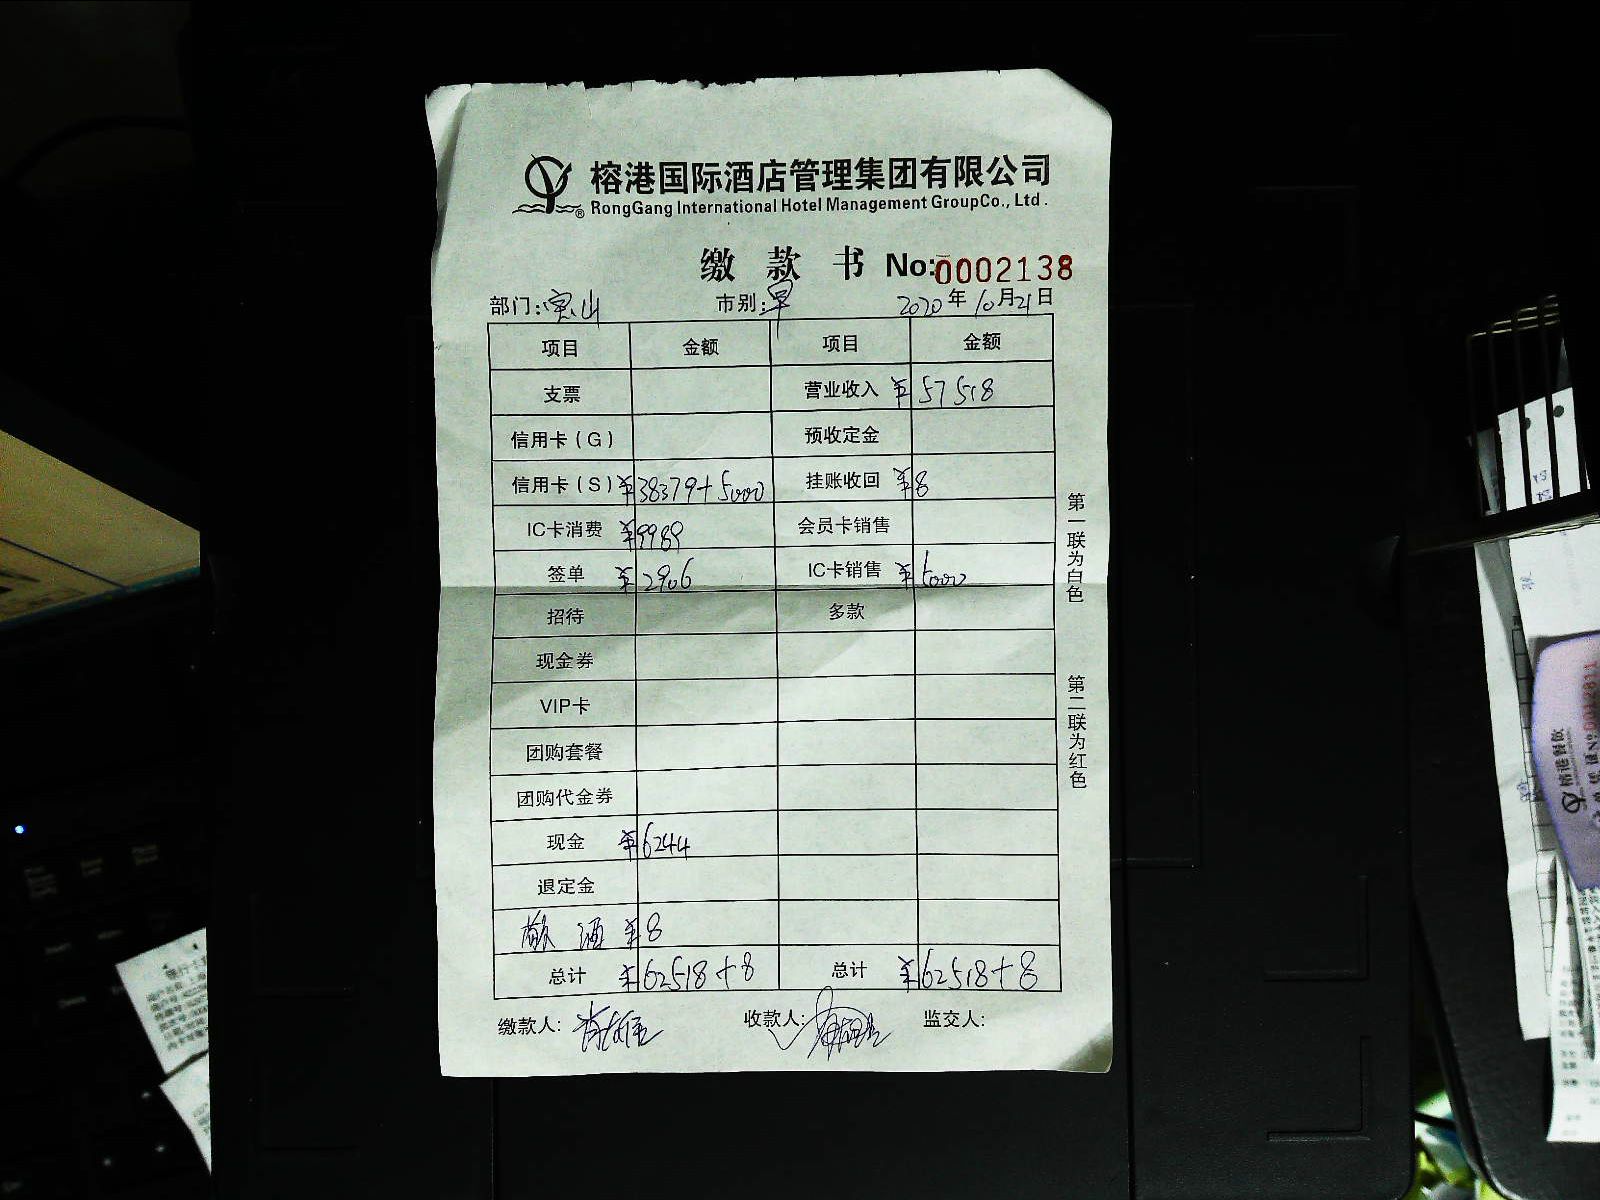 榕港国际酒店管理集团有限公司
® RongGang International Hotel Management GroupCo., Ltd.
缴 款 书 No:0002138
部门:宝山 市别:早 2020年10月21日
项目 金额 项目 金额
支票 营业收入 ¥57518
信用卡(G) 预收定金
信用卡(S) ¥38379+5000 挂账收回 ¥8
IC卡消费 ¥9989 会员卡销售
签单 ¥2906 IC卡销售 ¥5000
招待 多款
现金券
VIP卡
团购套餐
团购代金券
现金 ¥6244
退定金
酒 ¥8
总计 ¥62518+8 总计 ¥62518+8
缴款人: 收款人: 监交人:
第一联为白色
第二联为红色
榕港餐饮